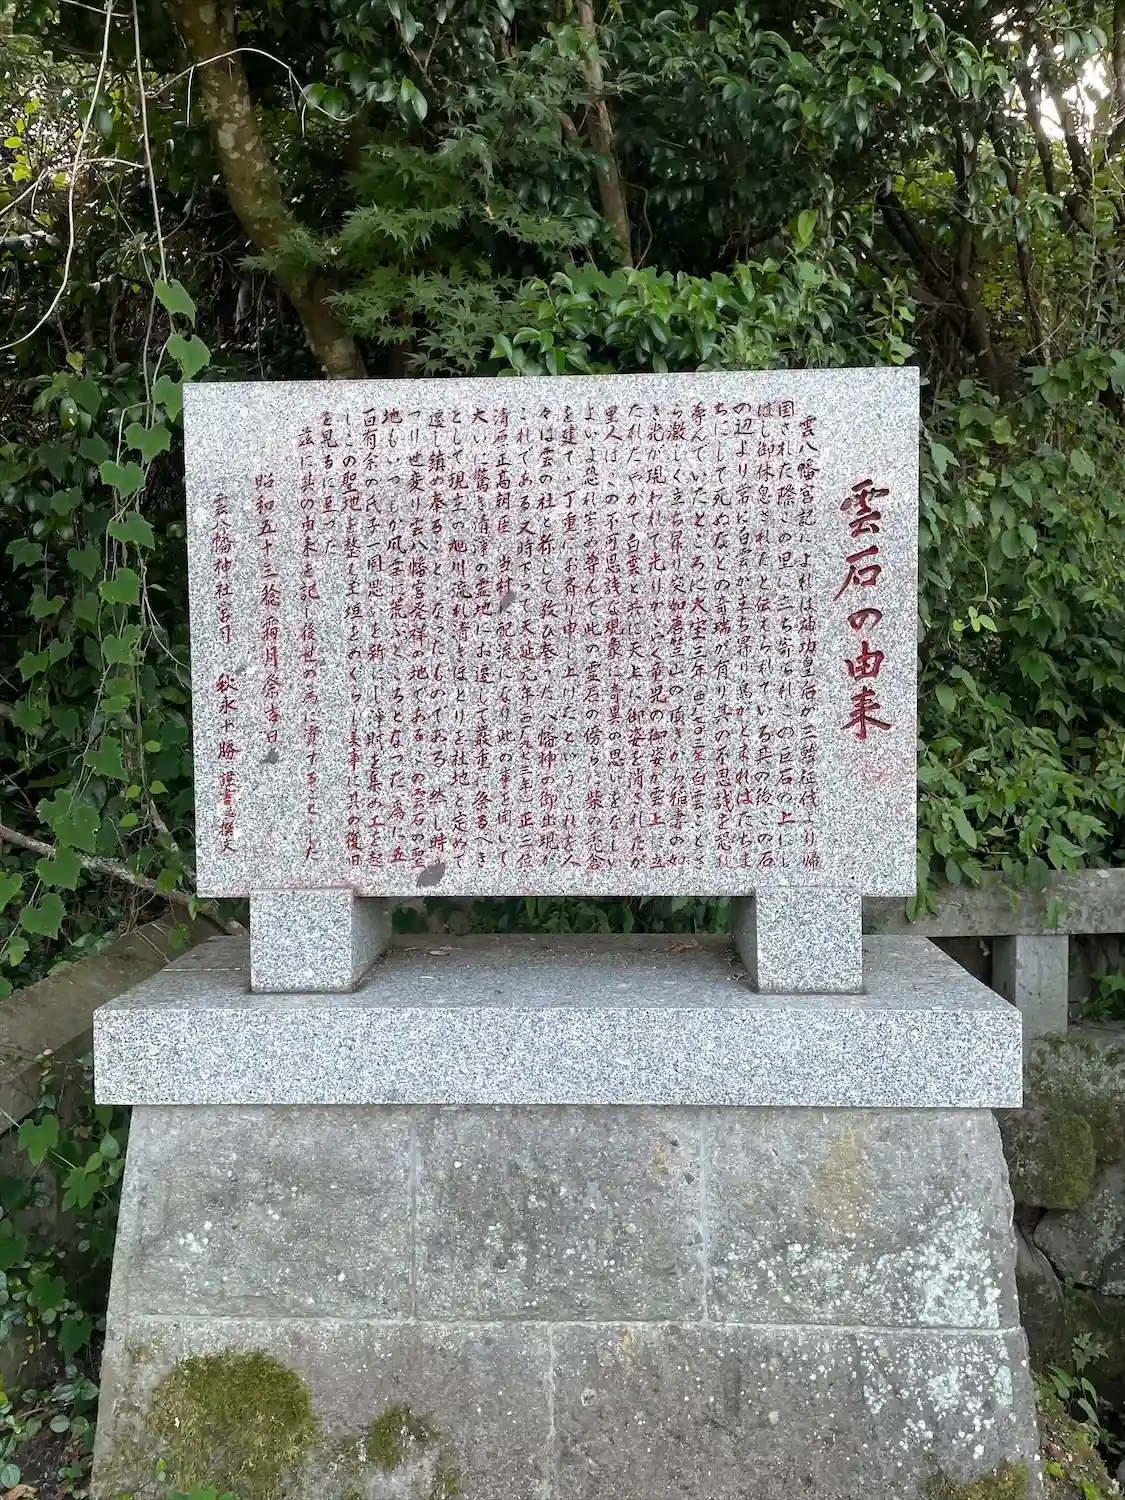 雲石の由来
雲八幡宮記によれば神功皇后が三韓征伐より帰
国された際この里に立ち寄られこの巨石の上にし
ばし御休息されたと伝えられている其の後この石
の辺より常に白雲が立ち昇り鳥がとまればたちま
ちにして死ぬなどの奇瑞が有り其の不思議を恐れ
尊んでいたところに大宝三年西七〇三年白雲ことさ
ら激しく立ち昇り突如君山の頂きから稲妻の如
き光が現われて光りかゞやく童児の御姿が雲上に立
たれたやがて白雲と共に天上に御姿を消されたが
里人はこの不可思議な現象に奇異の思いをなしい
よいよ恐れ崇め尊んで此の霊石の傍らに柴の禿倉
を建てゝ丁重にお斉り申し上げたというこれを人
々は雲の社と称して敬ひ奉った八幡神の御出現が
これである又時下って天延元年西九七三年正三位
清原正高朝臣当村に配流になり此の事を聞いて
大いに驚き清浄の霊地にお遷しして厳重に祭るべき
として現在の旭川流れ清きほとりを社地と定めて
遷し鎮め奉ることゝなったものである然し時
うつり世変り雲八幡宮発祥の地であるこの雲石の聖
地もいつしか風害に荒ぶところとなった為に五
百有余の氏子一同思いを新にし浄財を集め工を起
しこの聖地を整え玉垣をめぐらし美事に其の復旧
を見るに至った
茲に其の由来を記し後世の為に資することした
昭和五十三稔霜月祭吉日
雲八幡神社宮司 秋永十勝 謹書撰文